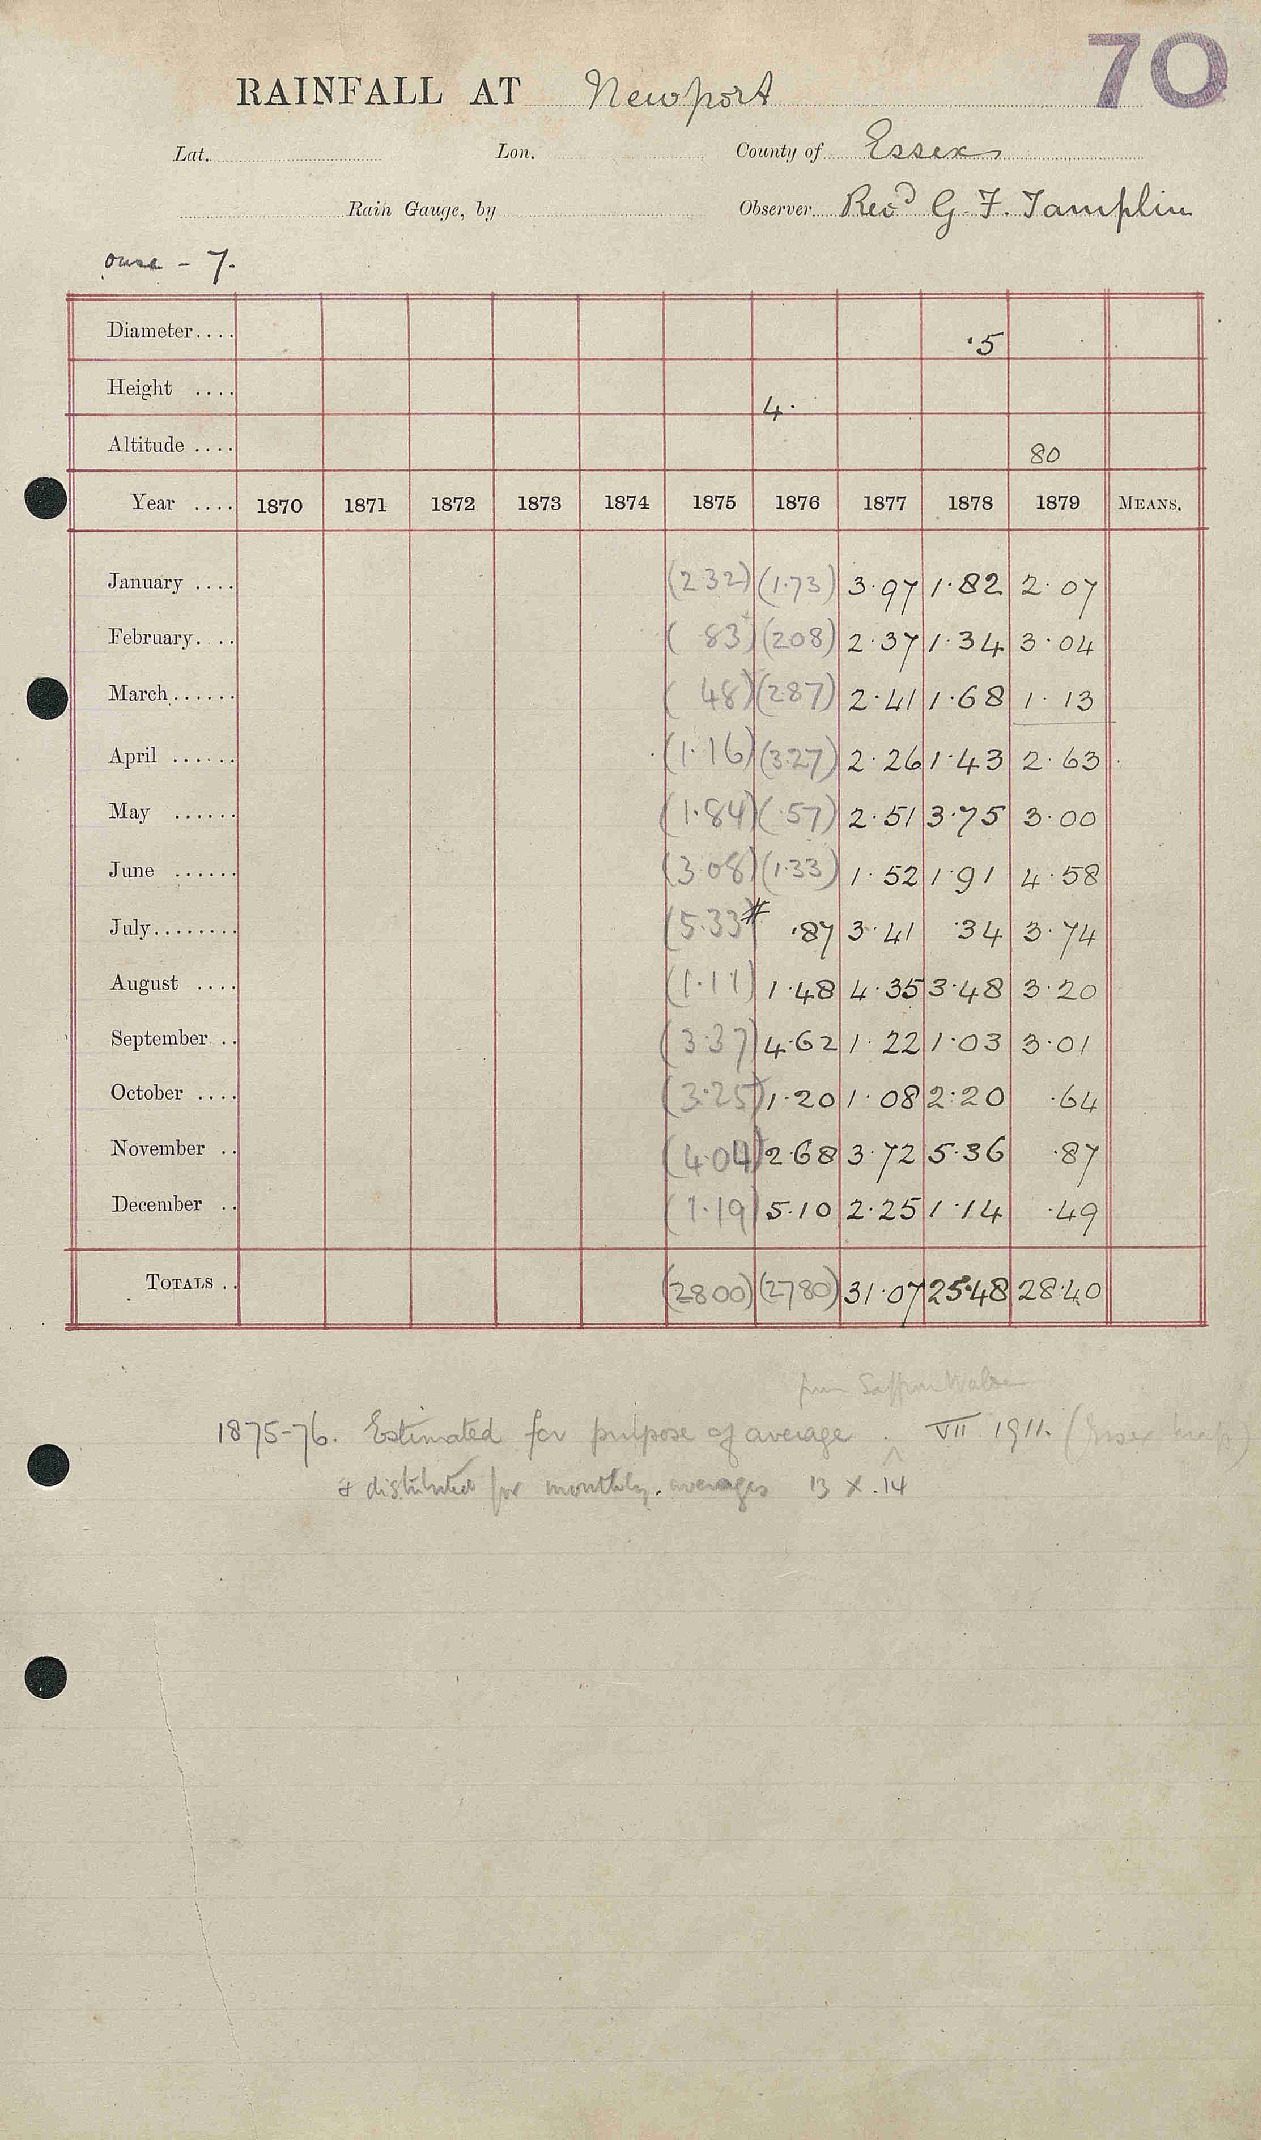 70
RAINFALL AT Newport
Lat. Lon. County of Essex
Rain Gauge, by Observer Revd G. F. Tamplin
ouse - 7.
Diameter.... ·5
Height .... 4·
Altitude .... 80
Year .... 1870 1871 1872 1873 1874 1875 1876 1877 1878 1879 MEANS.
January .... (2 32) (1·73) 3·97 1·82 2·07
February... ( 83) (2 08) 2·37 1·34 3·04
March...... ( 48) (2 87) 2·41 1·68 1·13
April ...... (1·16) (3·27) 2·26 1·43 2·63
May ...... (1·84) (·57) 2·51 3·75 3·00
June ...... (3·08) (1·33) 1·52 1·91 4·58
July........ (5·33)# ·87 3·41 ·34 3·74
August .... (1·11) 1·48 4·35 3·48 3·20
September .. (3·37) 4·62 1·22 1·03 3·01
October .... (3·25) 1·20 1·08 2·20 ·64
November .. (4·04) 2·68 3·72 5·36 ·87
December .. (1·19) 5·10 2·25 1·14 ·49
TOTALS .. (28 00) (27 80) 31·07 25·48 28·40
from Saffron Walden
1875-76. Estimated for purpose of average . VII 1911. (Essex map)
& distributed for monthly averages 13 X .14